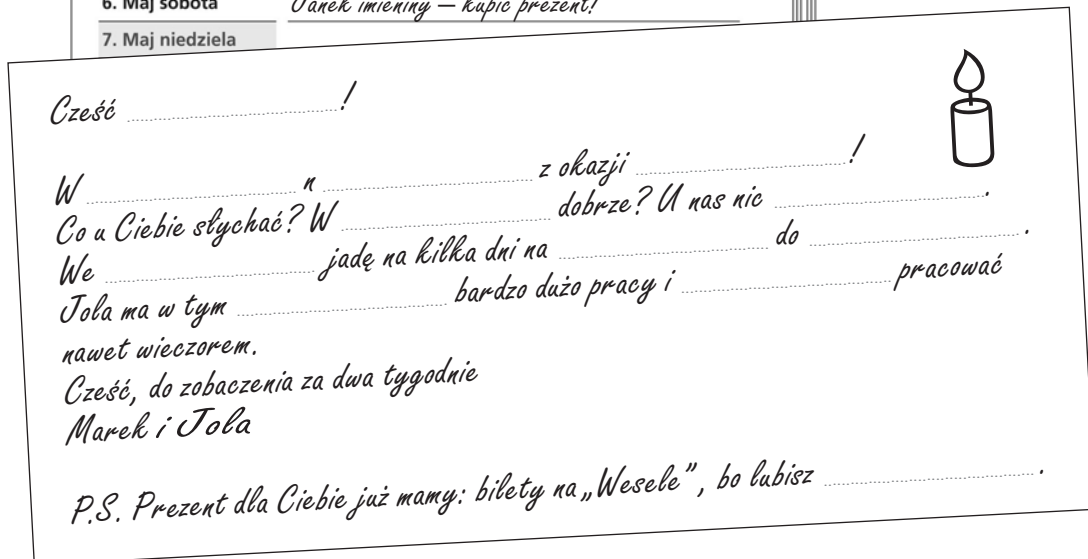 6. Maj sobota Janek imieniny — kupić prezent!
7. Maj niedziela
Cześć ....................!
W .................... n .................... z okazji ....................!
Co u Ciebie słychać? W .................... dobrze? U nas nic ....................
We .................... jadę na kilka dni na .................... do ....................
Jola ma w tym .................... bardzo dużo pracy i .................... pracować
nawet wieczorem.
Cześć, do zobaczenia za dwa tygodnie
Marek i Jola
P.S. Prezent dla Ciebie już mamy: bilety na „Wesele”, bo lubisz ....................